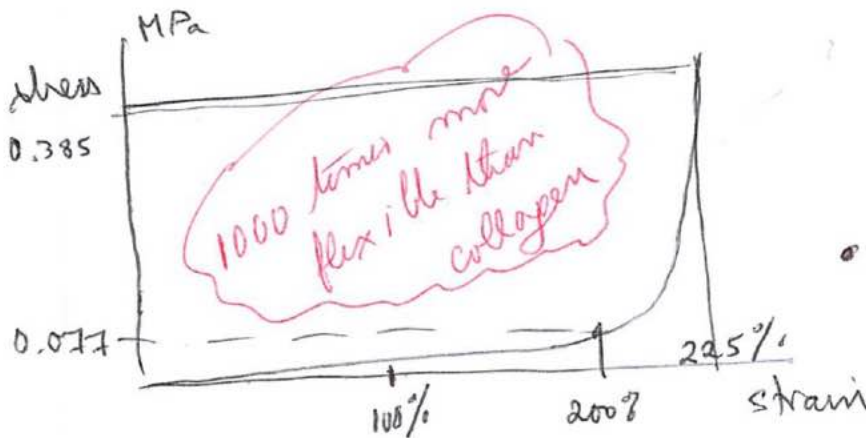 MPa
stress
0.385
1000 times more
flexible than
collagen
0.077
225%
100%
200%
strain